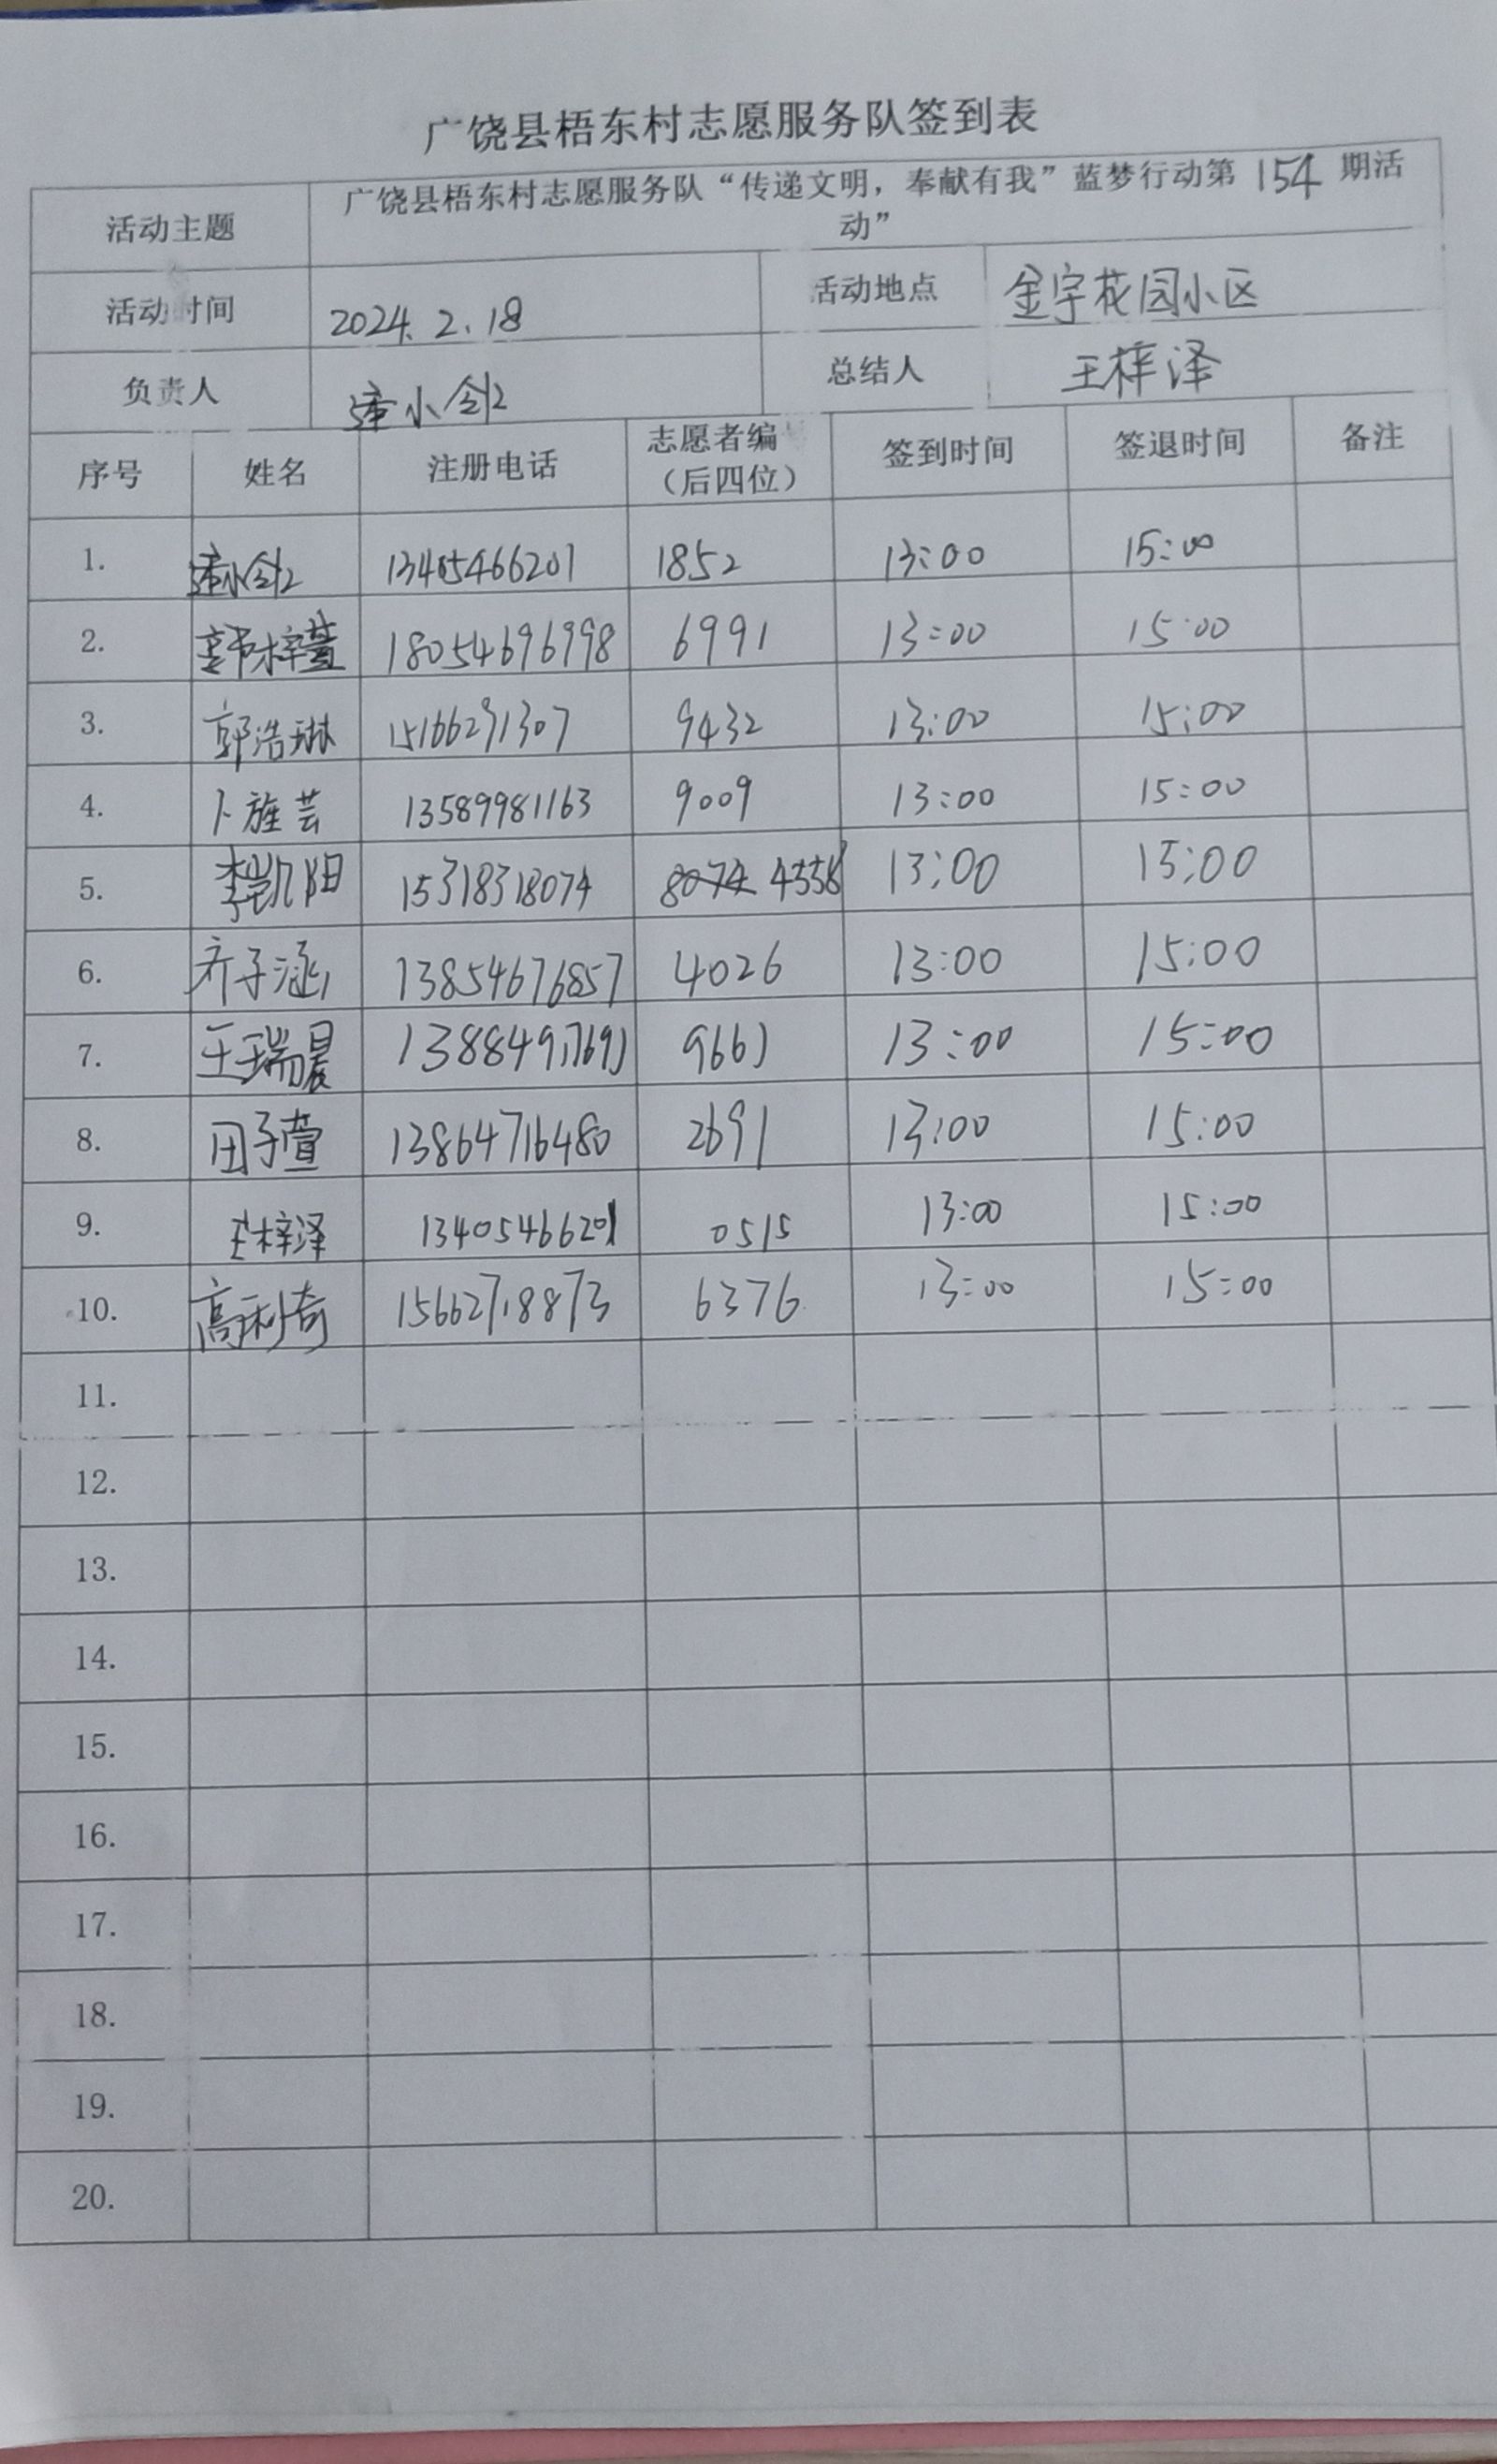 广饶县梧东村志愿服务队签到表
活动主题 广饶县梧东村志愿服务队“传递文明，奉献有我”蓝梦行动第 154 期活
动”
活动时间 2024.2.18 活动地点 金宇花园小区
负责人 小 总结人 王梓泽
序号 姓名 注册电话 志愿者编号（后四位） 签到时间 签退时间 备注
1. 13405466201 1852 13:00 15:00
2. 韩梓萱 18054696998 6991 13:00 15:00
3. 郭浩琳 15166291307 9432 13:00 15:00
4. 卜旌芸 13589981163 9009 13:00 15:00
5. 李凯阳 15318318074 8074 4558 13:00 15:00
6. 齐子涵 13854676857 4026 13:00 15:00
7. 王瑞晨 13884917691 9661 13:00 15:00
8. 田子萱 13864716480 2691 13:00 15:00
9. 王梓泽 13405466201 0515 13:00 15:00
10. 高利奇 15662718873 6376 13:00 15:00
11.
12.
13.
14.
15.
16.
17.
18.
19.
20.